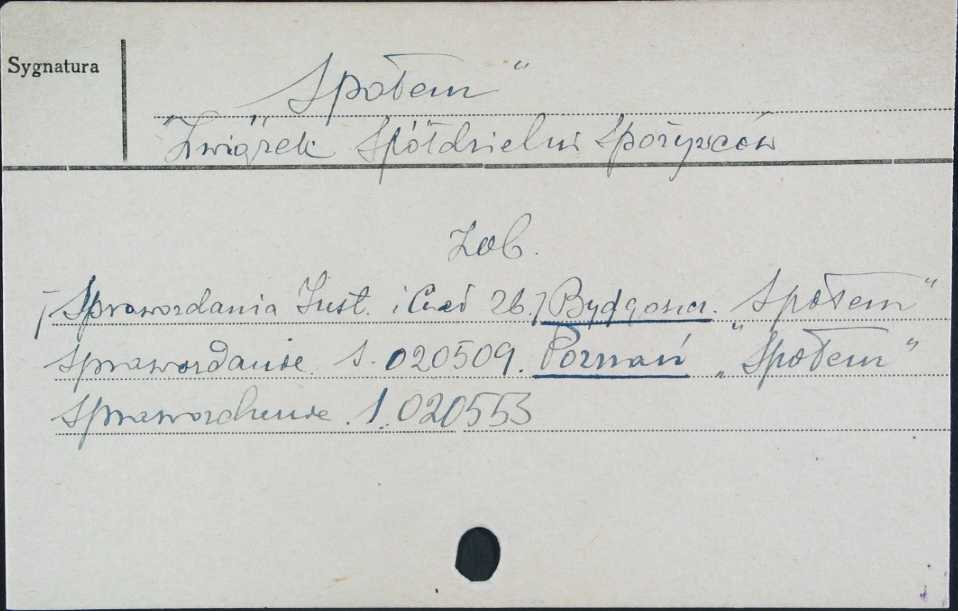 Sygnatura
„Społem”
Związek Spółdzielni Spożywców
Zob.
/Sprawozdania Inst. i Czas. zb./ Bydgoszcz. „Społem”
Sprawozdanie. S. 020509. Poznań „Społem”
Sprawozdanie. S. 020553